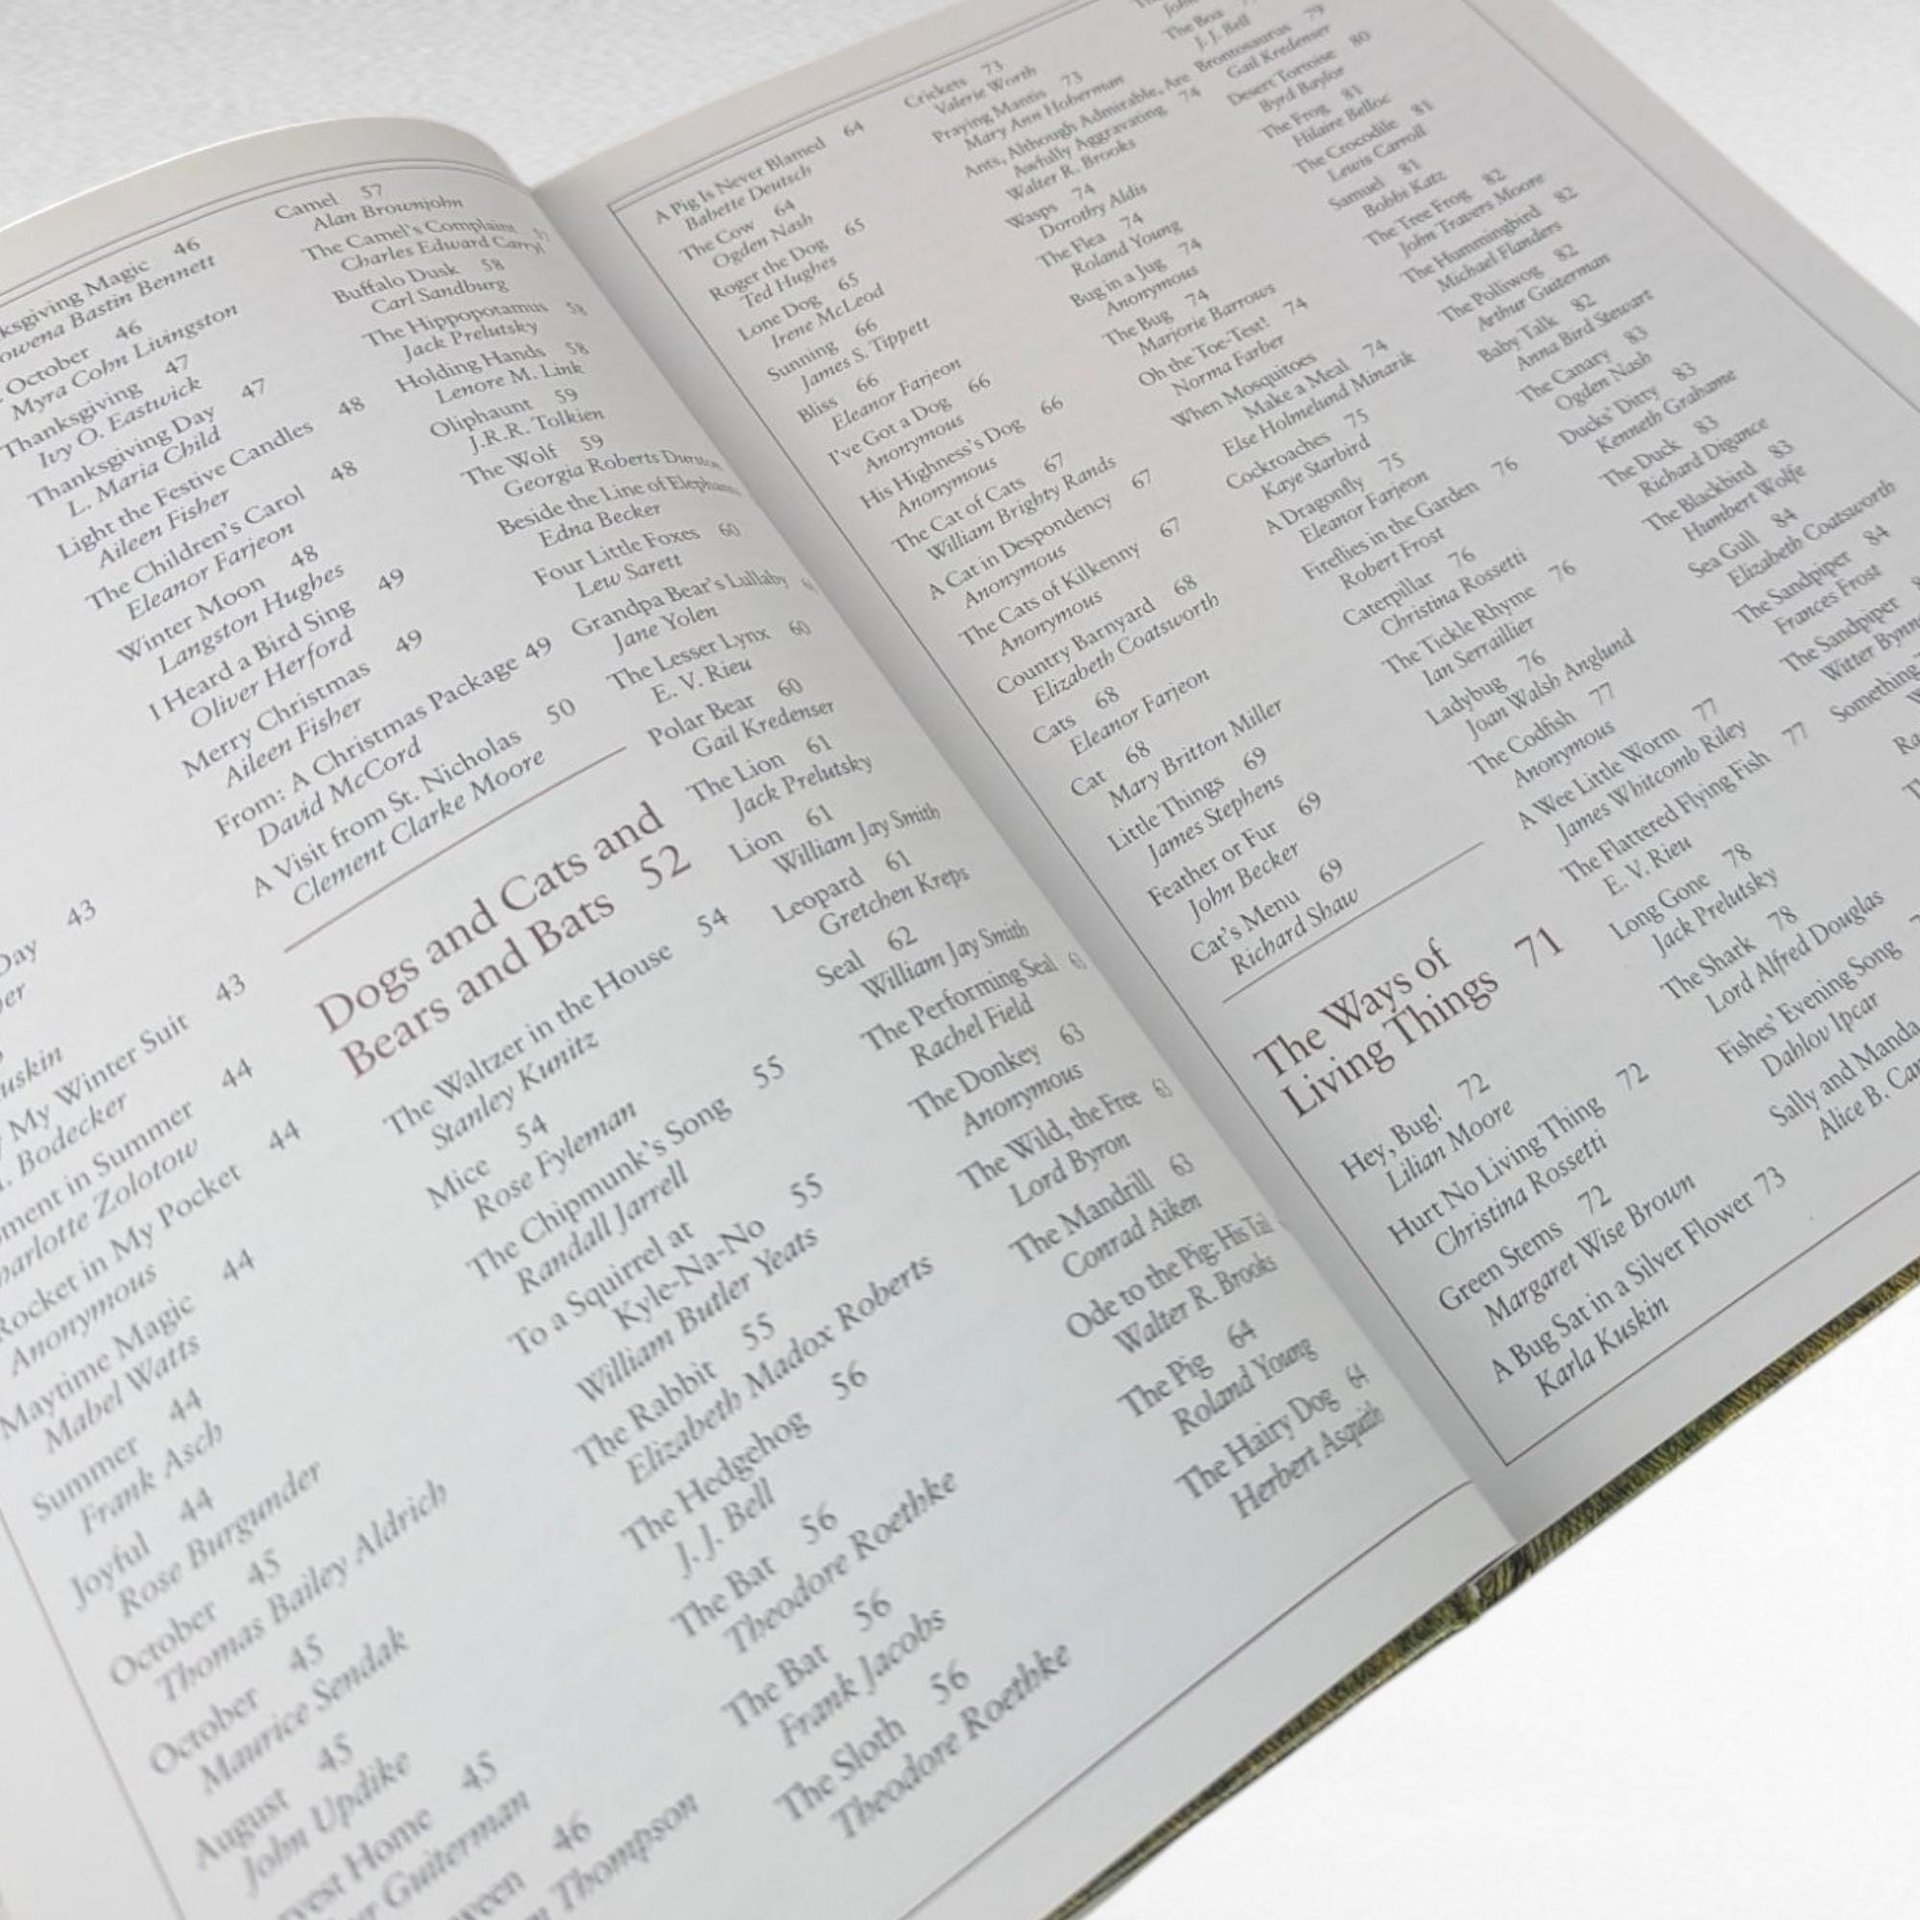 Day 43
My Winter Suit 43
Bodecker
in Summer 44
Zolotow
Rocket in My Pocket 44
Anonymous
Maytime Magic 44
Mabel Watts
Summer 44
Frank Asch
Joyful 44
Rose Burgunder
October 45
Thomas Bailey Aldrich
October 45
Maurice Sendak
August 45
John Updike
Home 45
Guiterman
46
Thompson
Magic 46
Bastin Bennett
October 46
Myra Cohn Livingston
Thanksgiving 47
Ivy O. Eastwick
Thanksgiving Day 47
L. Maria Child
Light the Festive Candles 48
Aileen Fisher
The Children's Carol 48
Eleanor Farjeon
Winter Moon 48
Langston Hughes
I Heard a Bird Sing 49
Oliver Herford
Merry Christmas 49
Aileen Fisher
From: A Christmas Package 49
David McCord
A Visit from St. Nicholas 50
Clement Clarke Moore
Dogs and Cats and
Bears and Bats 52
The Waltzer in the House 54
Stanley Kunitz
Mice 54
Rose Fyleman
The Chipmunk's Song 55
Randall Jarrell
To a Squirrel at
Kyle-Na-No 55
William Butler Yeats
The Rabbit 55
Elizabeth Madox Roberts
The Hedgehog 56
J. J. Bell
The Bat 56
Theodore Roethke
The Bat 56
Frank Jacobs
The Sloth 56
Theodore Roethke
Camel 57
Alan Brownjohn
The Camel's Complaint
Charles Edward Carryl
Buffalo Dusk 58
Carl Sandburg
The Hippopotamus 58
Jack Prelutsky
Holding Hands 58
Lenore M. Link
Oliphaunt 59
J.R.R. Tolkien
The Wolf 59
Georgia Roberts Durston
Beside the Line of Elephants
Edna Becker
Four Little Foxes 60
Lew Sarett
Grandpa Bear's Lullaby
Jane Yolen
The Lesser Lynx 60
E. V. Rieu
Polar Bear 60
Gail Kredenser
The Lion 61
Jack Prelutsky
Lion 61
William Jay Smith
Leopard 61
Gretchen Kreps
Seal 62
William Jay Smith
The Performing Seal
Rachel Field
The Donkey 63
Anonymous
The Wild, the Free 63
Lord Byron
The Mandrill 63
Conrad Aiken
Ode to the Pig: His Tail
Walter R. Brooks
The Pig 64
Roland Young
The Hairy Dog 64
Herbert Asquith
A Pig Is Never Blamed 64
Babette Deutsch
The Cow 64
Ogden Nash
Roger the Dog 65
Ted Hughes
Lone Dog 65
Irene McLeod
Sunning 66
James S. Tippett
Bliss 66
Eleanor Farjeon
I've Got a Dog 66
Anonymous
His Highness's Dog 66
Anonymous
The Cat of Cats 67
William Brighty Rands
A Cat in Despondency 67
Anonymous
The Cats of Kilkenny 67
Anonymous
Country Barnyard 68
Elizabeth Coatsworth
Cats 68
Eleanor Farjeon
Cat 68
Mary Britton Miller
Little Things 69
James Stephens
Feather or Fur 69
John Becker
Cat's Menu 69
Richard Shaw
The Ways of
Living Things 71
Hey, Bug! 72
Lilian Moore
Hurt No Living Thing 72
Christina Rossetti
Green Stems 72
Margaret Wise Brown
A Bug Sat in a Silver Flower 73
Karla Kuskin
Crickets 73
Valerie Worth
Praying Mantis 73
Mary Ann Hoberman
Ants, Although Admirable, Are
Awfully Aggravating 74
Walter R. Brooks
Wasps 74
Dorothy Aldis
The Flea 74
Roland Young
Bug in a Jug 74
Anonymous
The Bug 74
Marjorie Barrows
Oh the Toe-Test! 74
Norma Farber
When Mosquitoes
Make a Meal 74
Else Holmelund Minarik
Cockroaches 75
Kaye Starbird
A Dragonfly 75
Eleanor Farjeon
Fireflies in the Garden 76
Robert Frost
Caterpillar 76
Christina Rossetti
The Tickle Rhyme 76
Ian Serraillier
Ladybug 76
Joan Walsh Anglund
The Codfish 77
Anonymous
A Wee Little Worm 77
James Whitcomb Riley
The Flattered Flying Fish 77
E. V. Rieu
Long Gone 78
Jack Prelutsky
The Shark 78
Lord Alfred Douglas
Fishes' Evening Song
Dahlov Ipcar
Sally and Manda
Alice B.
The Boa
J. J. Bell
Brontosaurus 79
Gail Kredenser
Desert Tortoise 80
Byrd Baylor
The Frog 81
Hilaire Belloc
The Crocodile 81
Lewis Carroll
Samuel 81
Bobbi Katz
The Tree Frog 82
John Travers Moore
The Hummingbird 82
Michael Flanders
The Polliwog 82
Arthur Guiterman
Baby Talk 82
Anna Bird Stewart
The Canary 83
Ogden Nash
Ducks' Ditty 83
Kenneth Grahame
The Duck 83
Richard Digance
The Blackbird 83
Humbert Wolfe
Sea Gull 84
Elizabeth Coatsworth
The Sandpiper 84
Frances Frost
The Sandpiper
Witter
Something